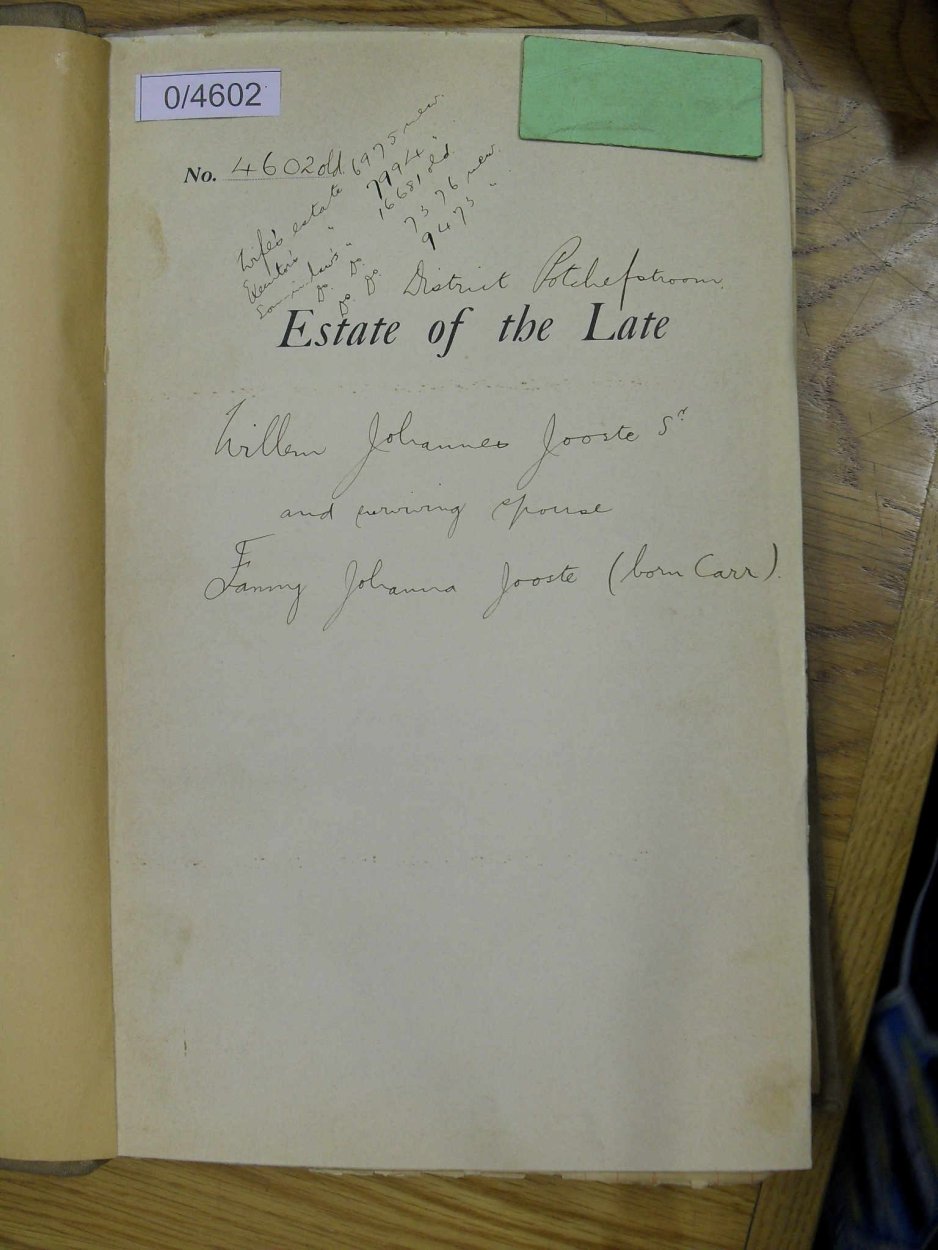 0/4602
No. 4602 old
Wife's estate 6975 new.
Executor's " 7994 "
Son-in-law's " 16681 old
Do. Do. 7376 new.
Do. Do. 9473 "
District Potchefstroom.
Estate of the Late
Willem Johannes Jooste Sr
and surviving spouse
Fanny Johanna Jooste (born Carr).